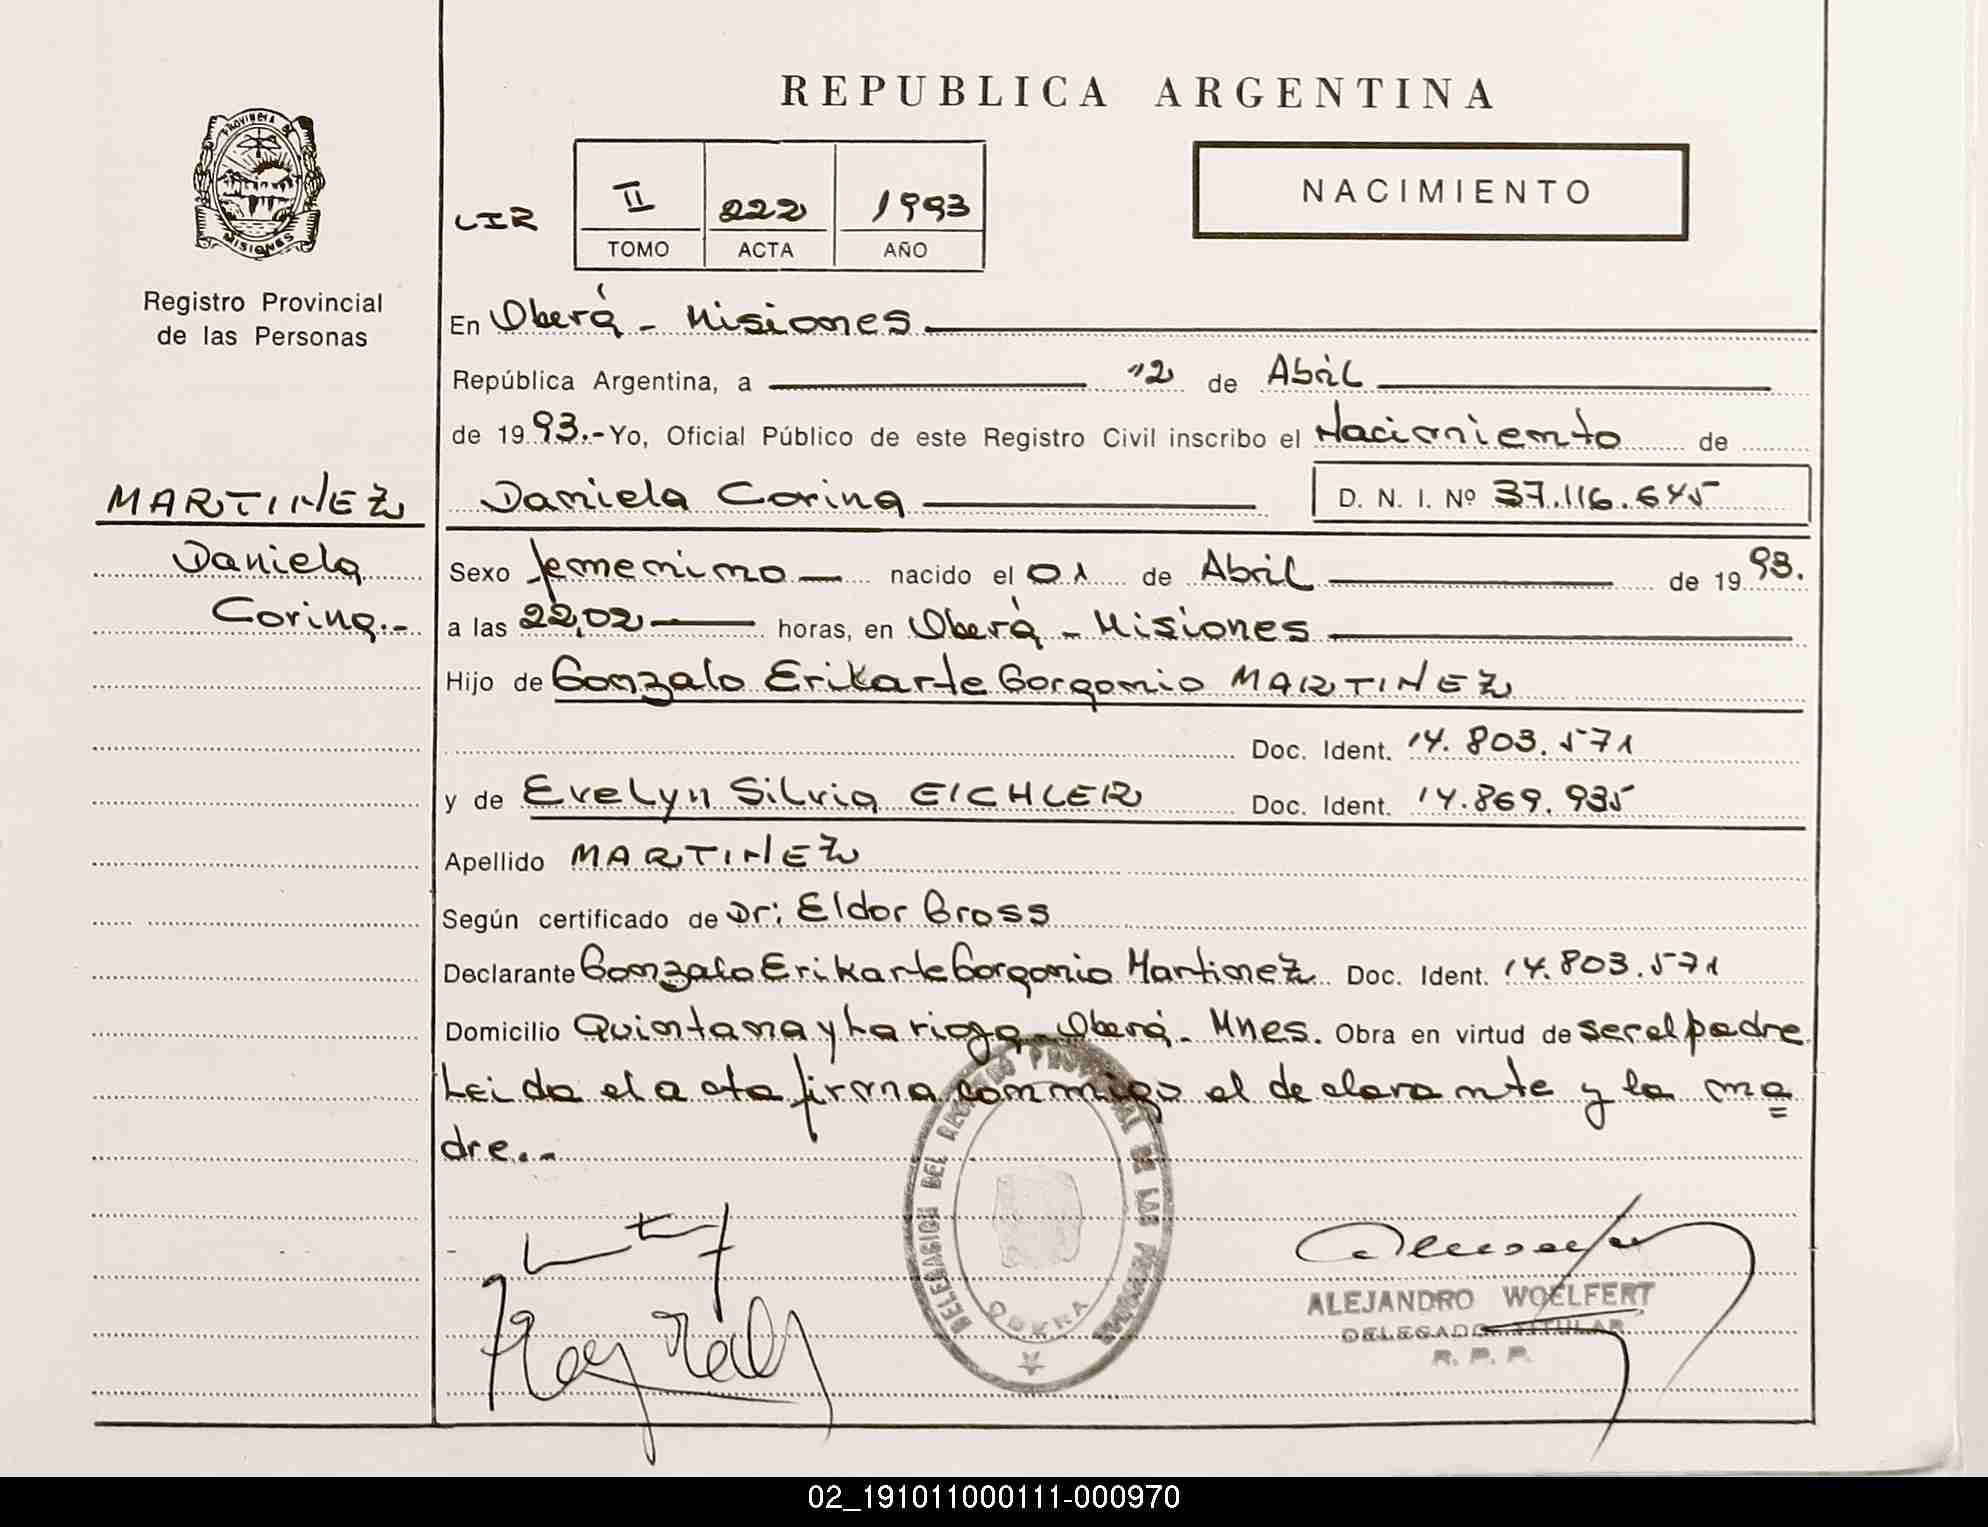 REPUBLICA ARGENTINA
PROVINCIA DE
MISIONES
Registro Provincial
de las Personas
CIR
II 222 1993
TOMO ACTA AÑO
NACIMIENTO
En Oberá - Misiones
República Argentina, a 12 de Abril
de 1993.- Yo, Oficial Público de este Registro Civil inscribo el Nacimiento de
MARTINEZ
Daniela
Corina.-
Daniela Corina D. N. I. Nº 37.116.645
Sexo femenino nacido el 01 de Abril de 1993.
a las 22,02 horas, en Oberá - Misiones
Hijo de Gonzalo Erikarte Gorgonio MARTINEZ
Doc. Ident. 14.803.571
y de Evelyn Silvia EICHLER Doc. Ident. 14.869.935
Apellido MARTINEZ
Según certificado de Dr: Eldor Gross
Declarante Gonzalo Erikarte Gorgonio Martinez Doc. Ident. 14.803.571
Domicilio Quintana y La rioja - Oberá - Mnes. Obra en virtud de ser el padre
Leida el acta firma conmigo el declarante y la ma
dre.-
DELEGACION DEL REGISTRO PROVINCIAL DE LAS PERSONAS
OBERA
ALEJANDRO WOELFERT
DELEGADO TITULAR
R. P. P.
02_191011000111-000970